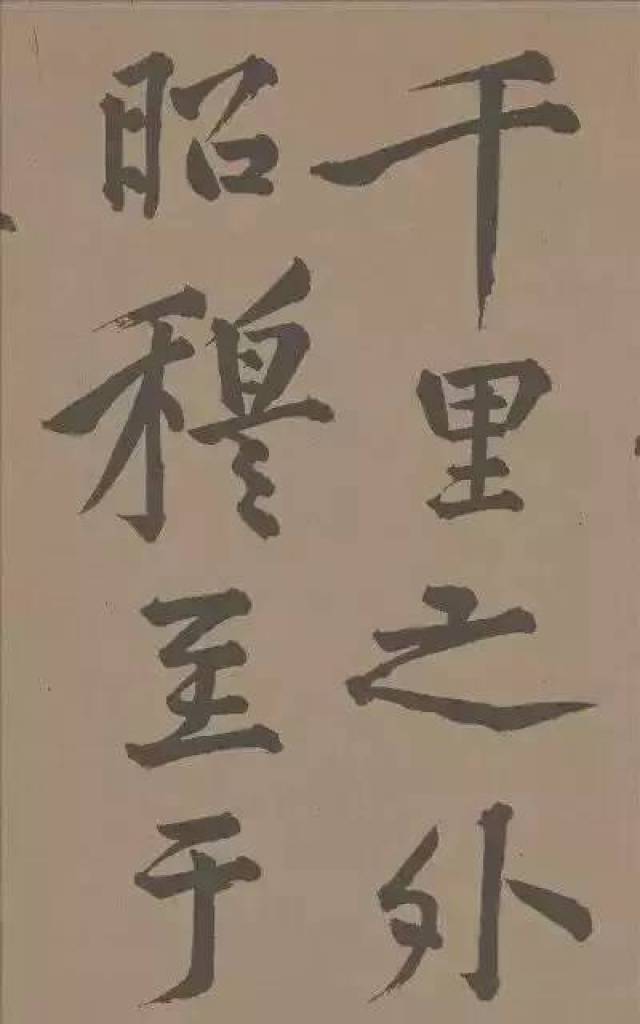 千里之外
昭穆至于